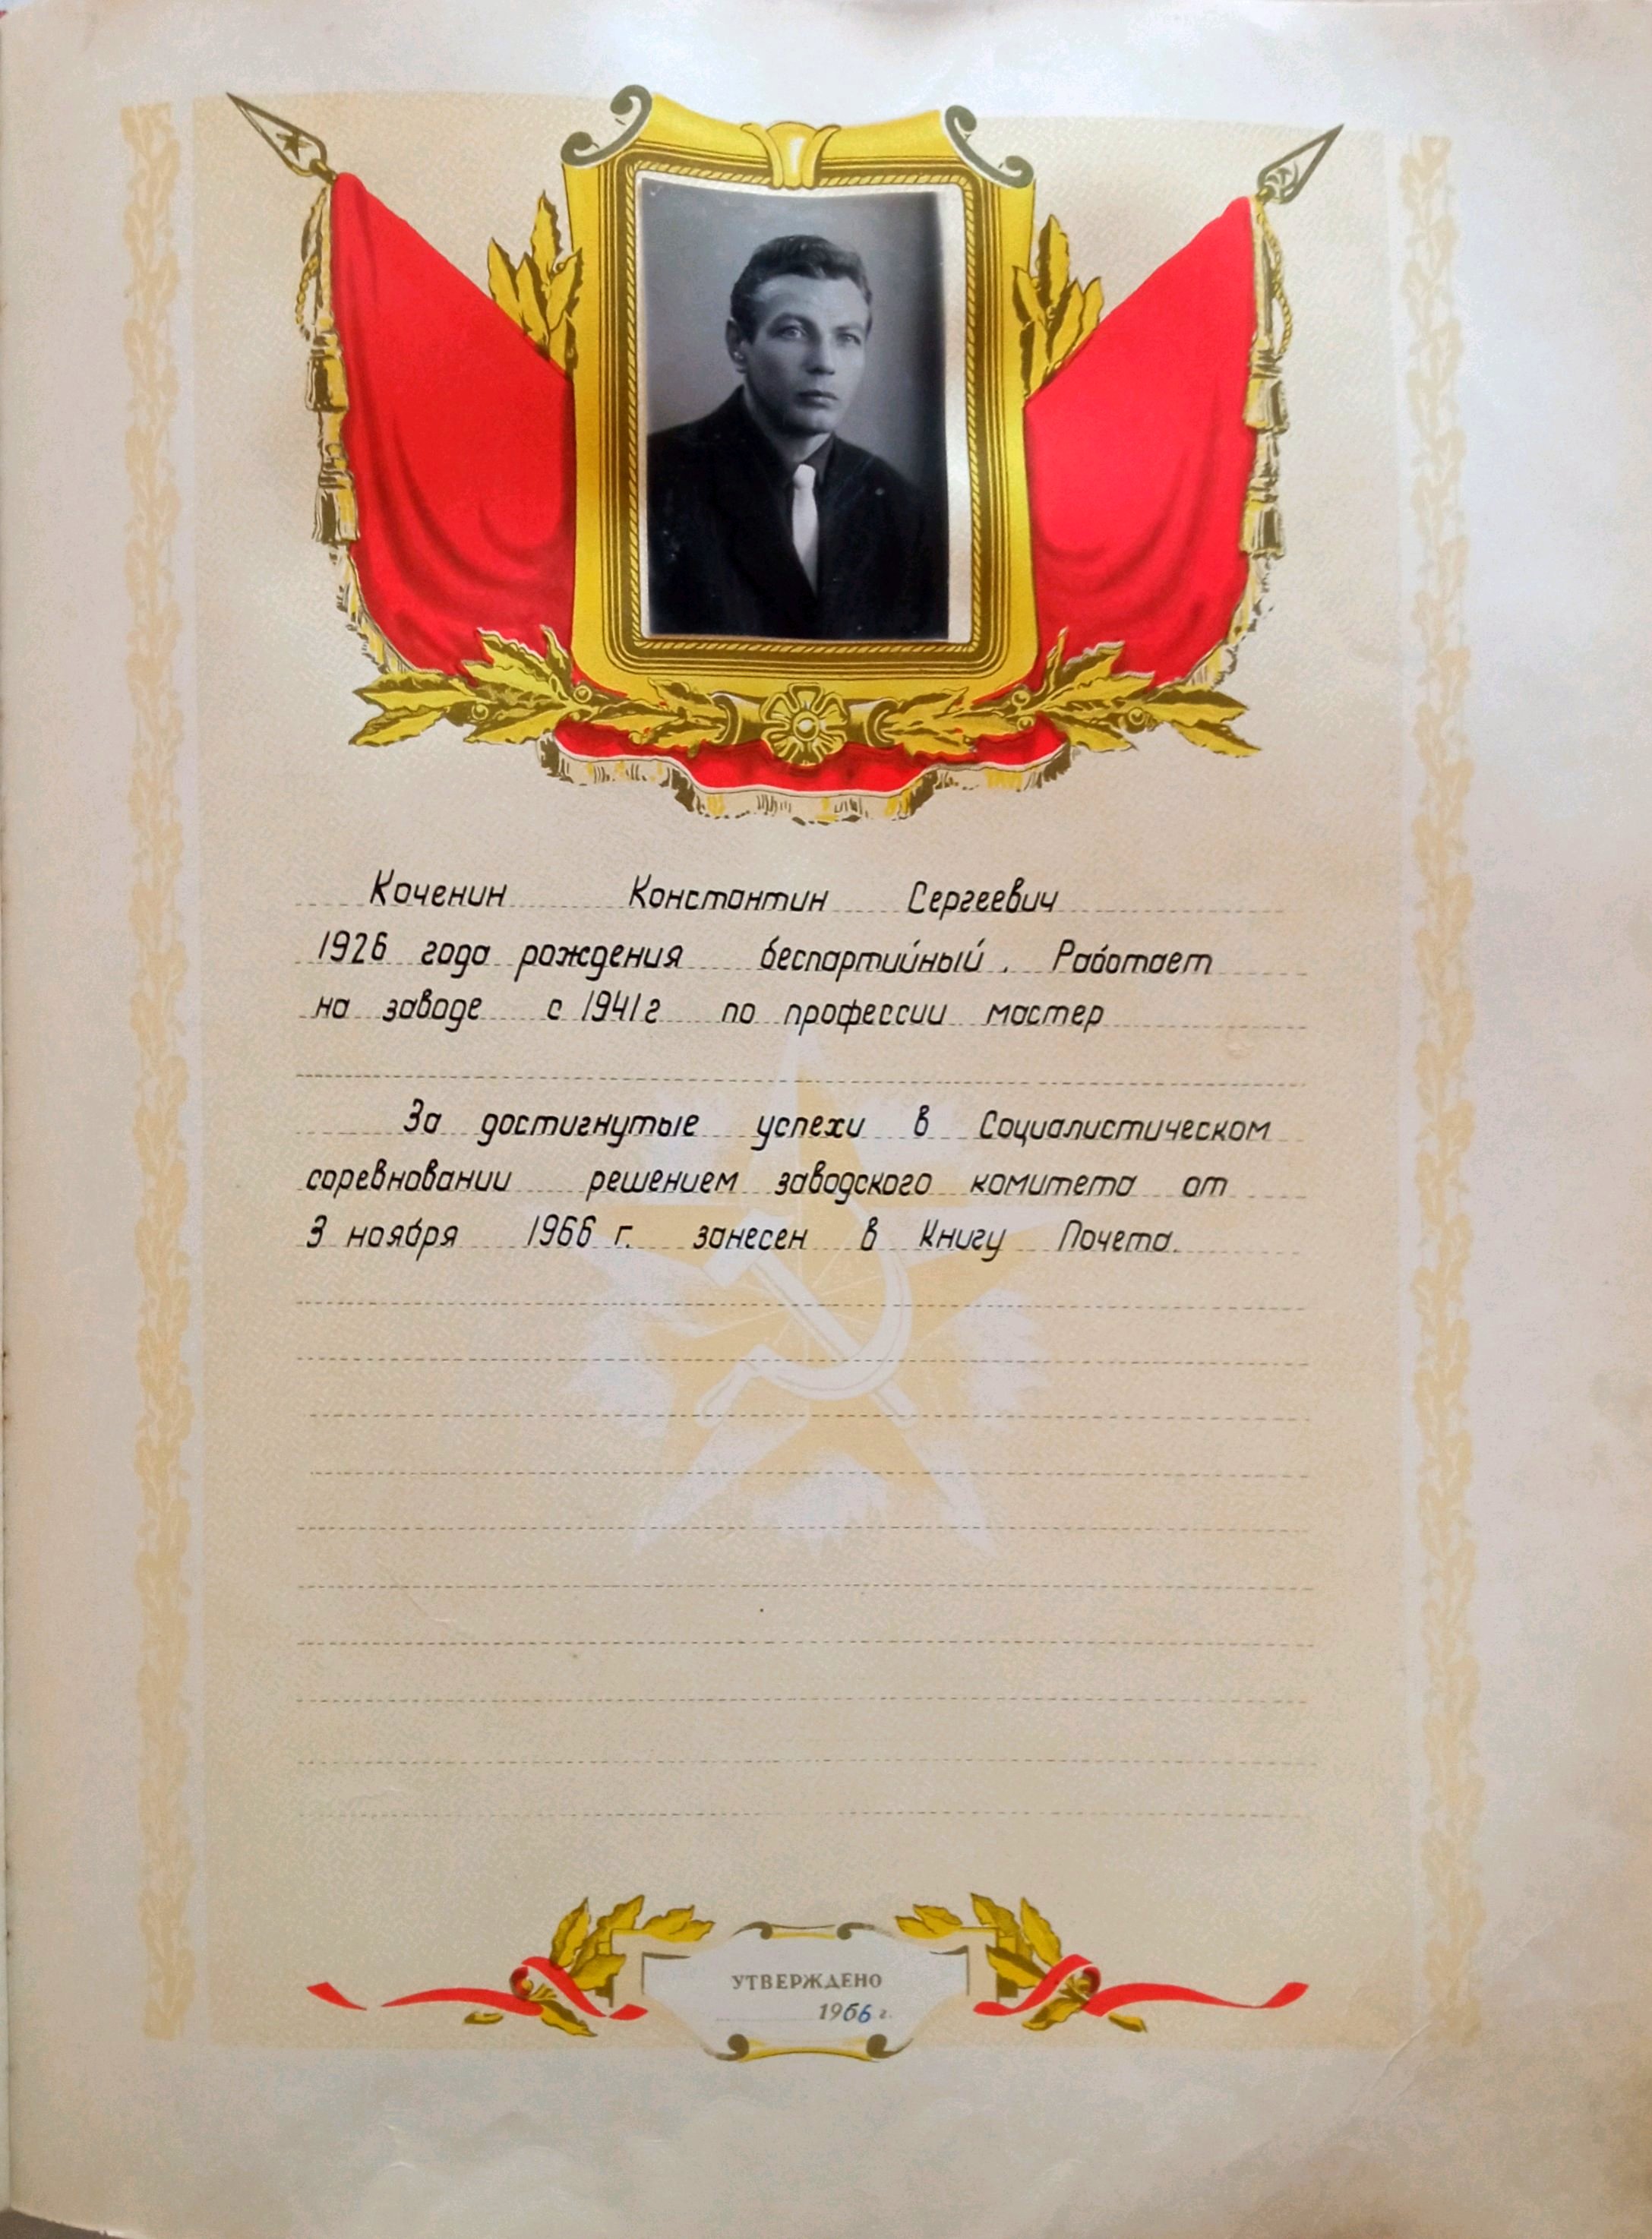 Коченин Константин Сергеевич
1926 года рождения беспартийный. Работает
на заводе с 1941г по профессии мастер
За достигнутые успехи в Социалистическом
соревновании решением заводского комитета от
3 ноября 1966 г. занесен в Книгу Почета.
УТВЕРЖДЕНО
1966 г.